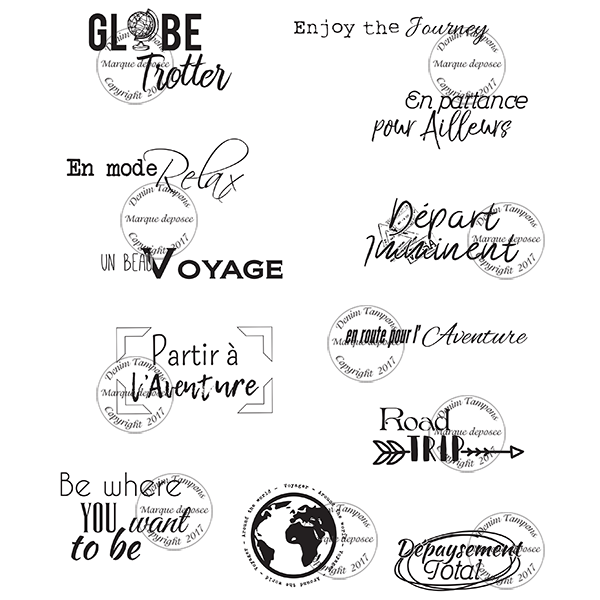 GLOBE
Trotter
Denim Tampons
Marque deposee
Copyright 2017
Enjoy the Journey
Denim Tampons
Marque deposee
Copyright 2017
En partance
pour Ailleurs
En mode Relax
Denim Tampons
Marque deposee
Copyright 2017
UN BEAU VOYAGE
Départ
Imminent
Denim Tampons
Marque deposee
Copyright 2017
Partir à
l'Aventure
Denim Tampons
Marque deposee
Copyright 2017
en route pour l' Aventure
Denim Tampons
Marque deposee
Copyright 2017
Road
TRIP
Denim Tampons
Marque deposee
Copyright 2017
Be where
YOU want
to be
Denim Tampons
Marque deposee
Copyright 2017
Around the world - Voyager - Around the world - Voyager -
Denim Tampons
Marque deposee
Copyright 2017
Dépaysement
Total
Denim Tampons
Marque deposee
Copyright 2017